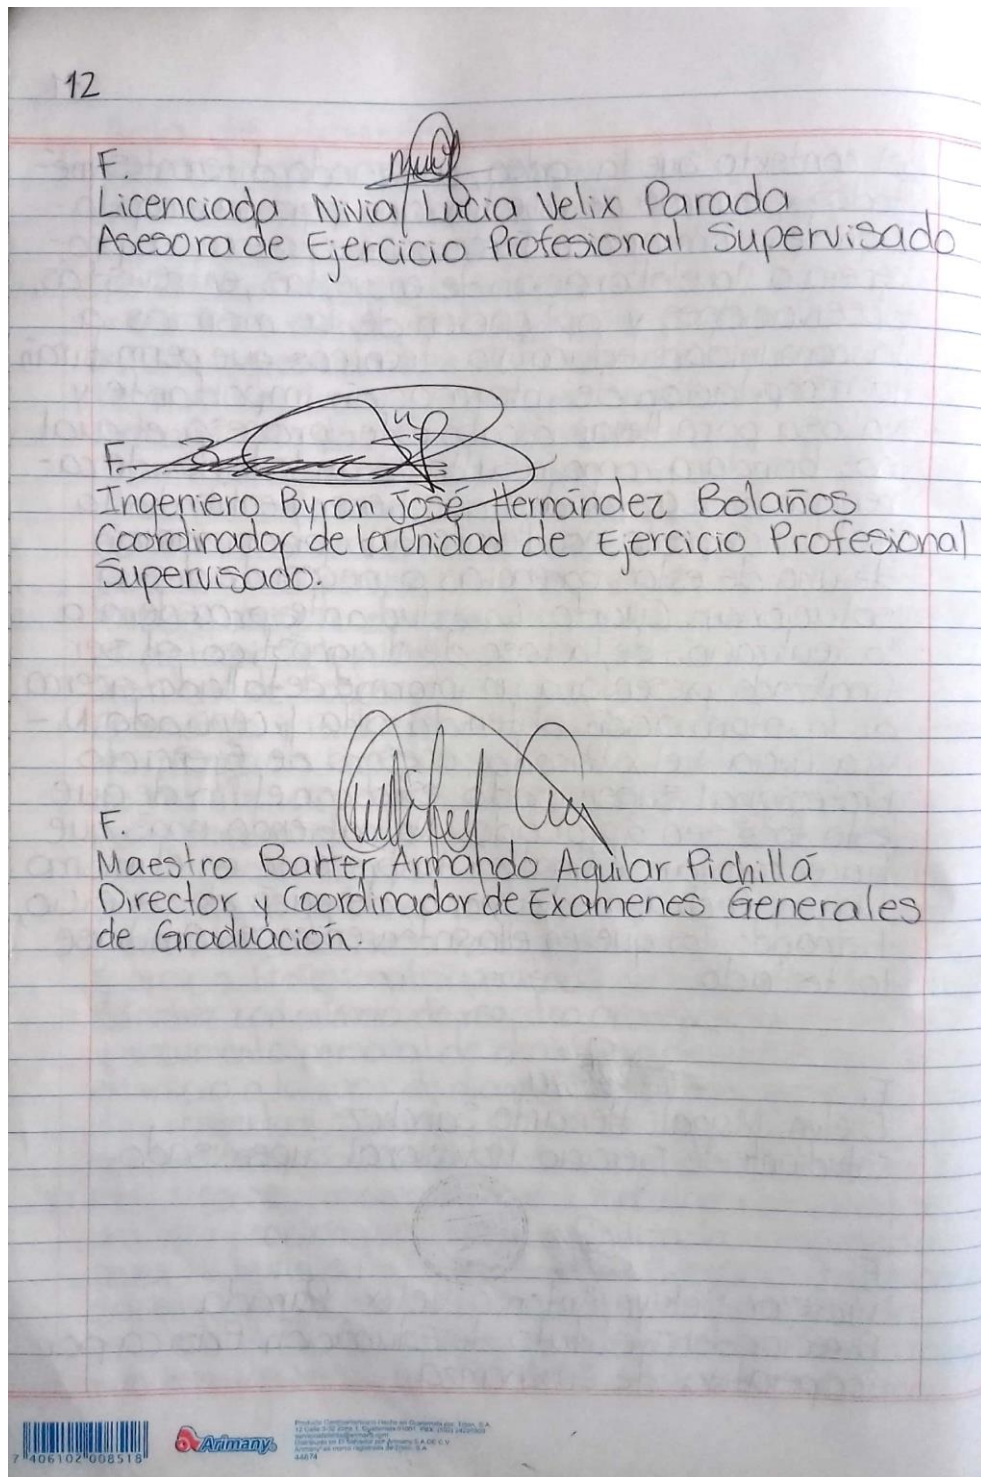 12
F.
Licenciada Nivia Lucia Velix Parada
Asesora de Ejercicio Profesional Supervisado
F.
Ingeniero Byron José Hernández Bolaños
Coordinador de la Unidad de Ejercicio Profesional
Supervisado.
F.
Maestro Balter Armando Aguilar Pichillá
Director y Coordinador de Examenes Generales
de Graduación.
7 406102 008518
Arimany
44674